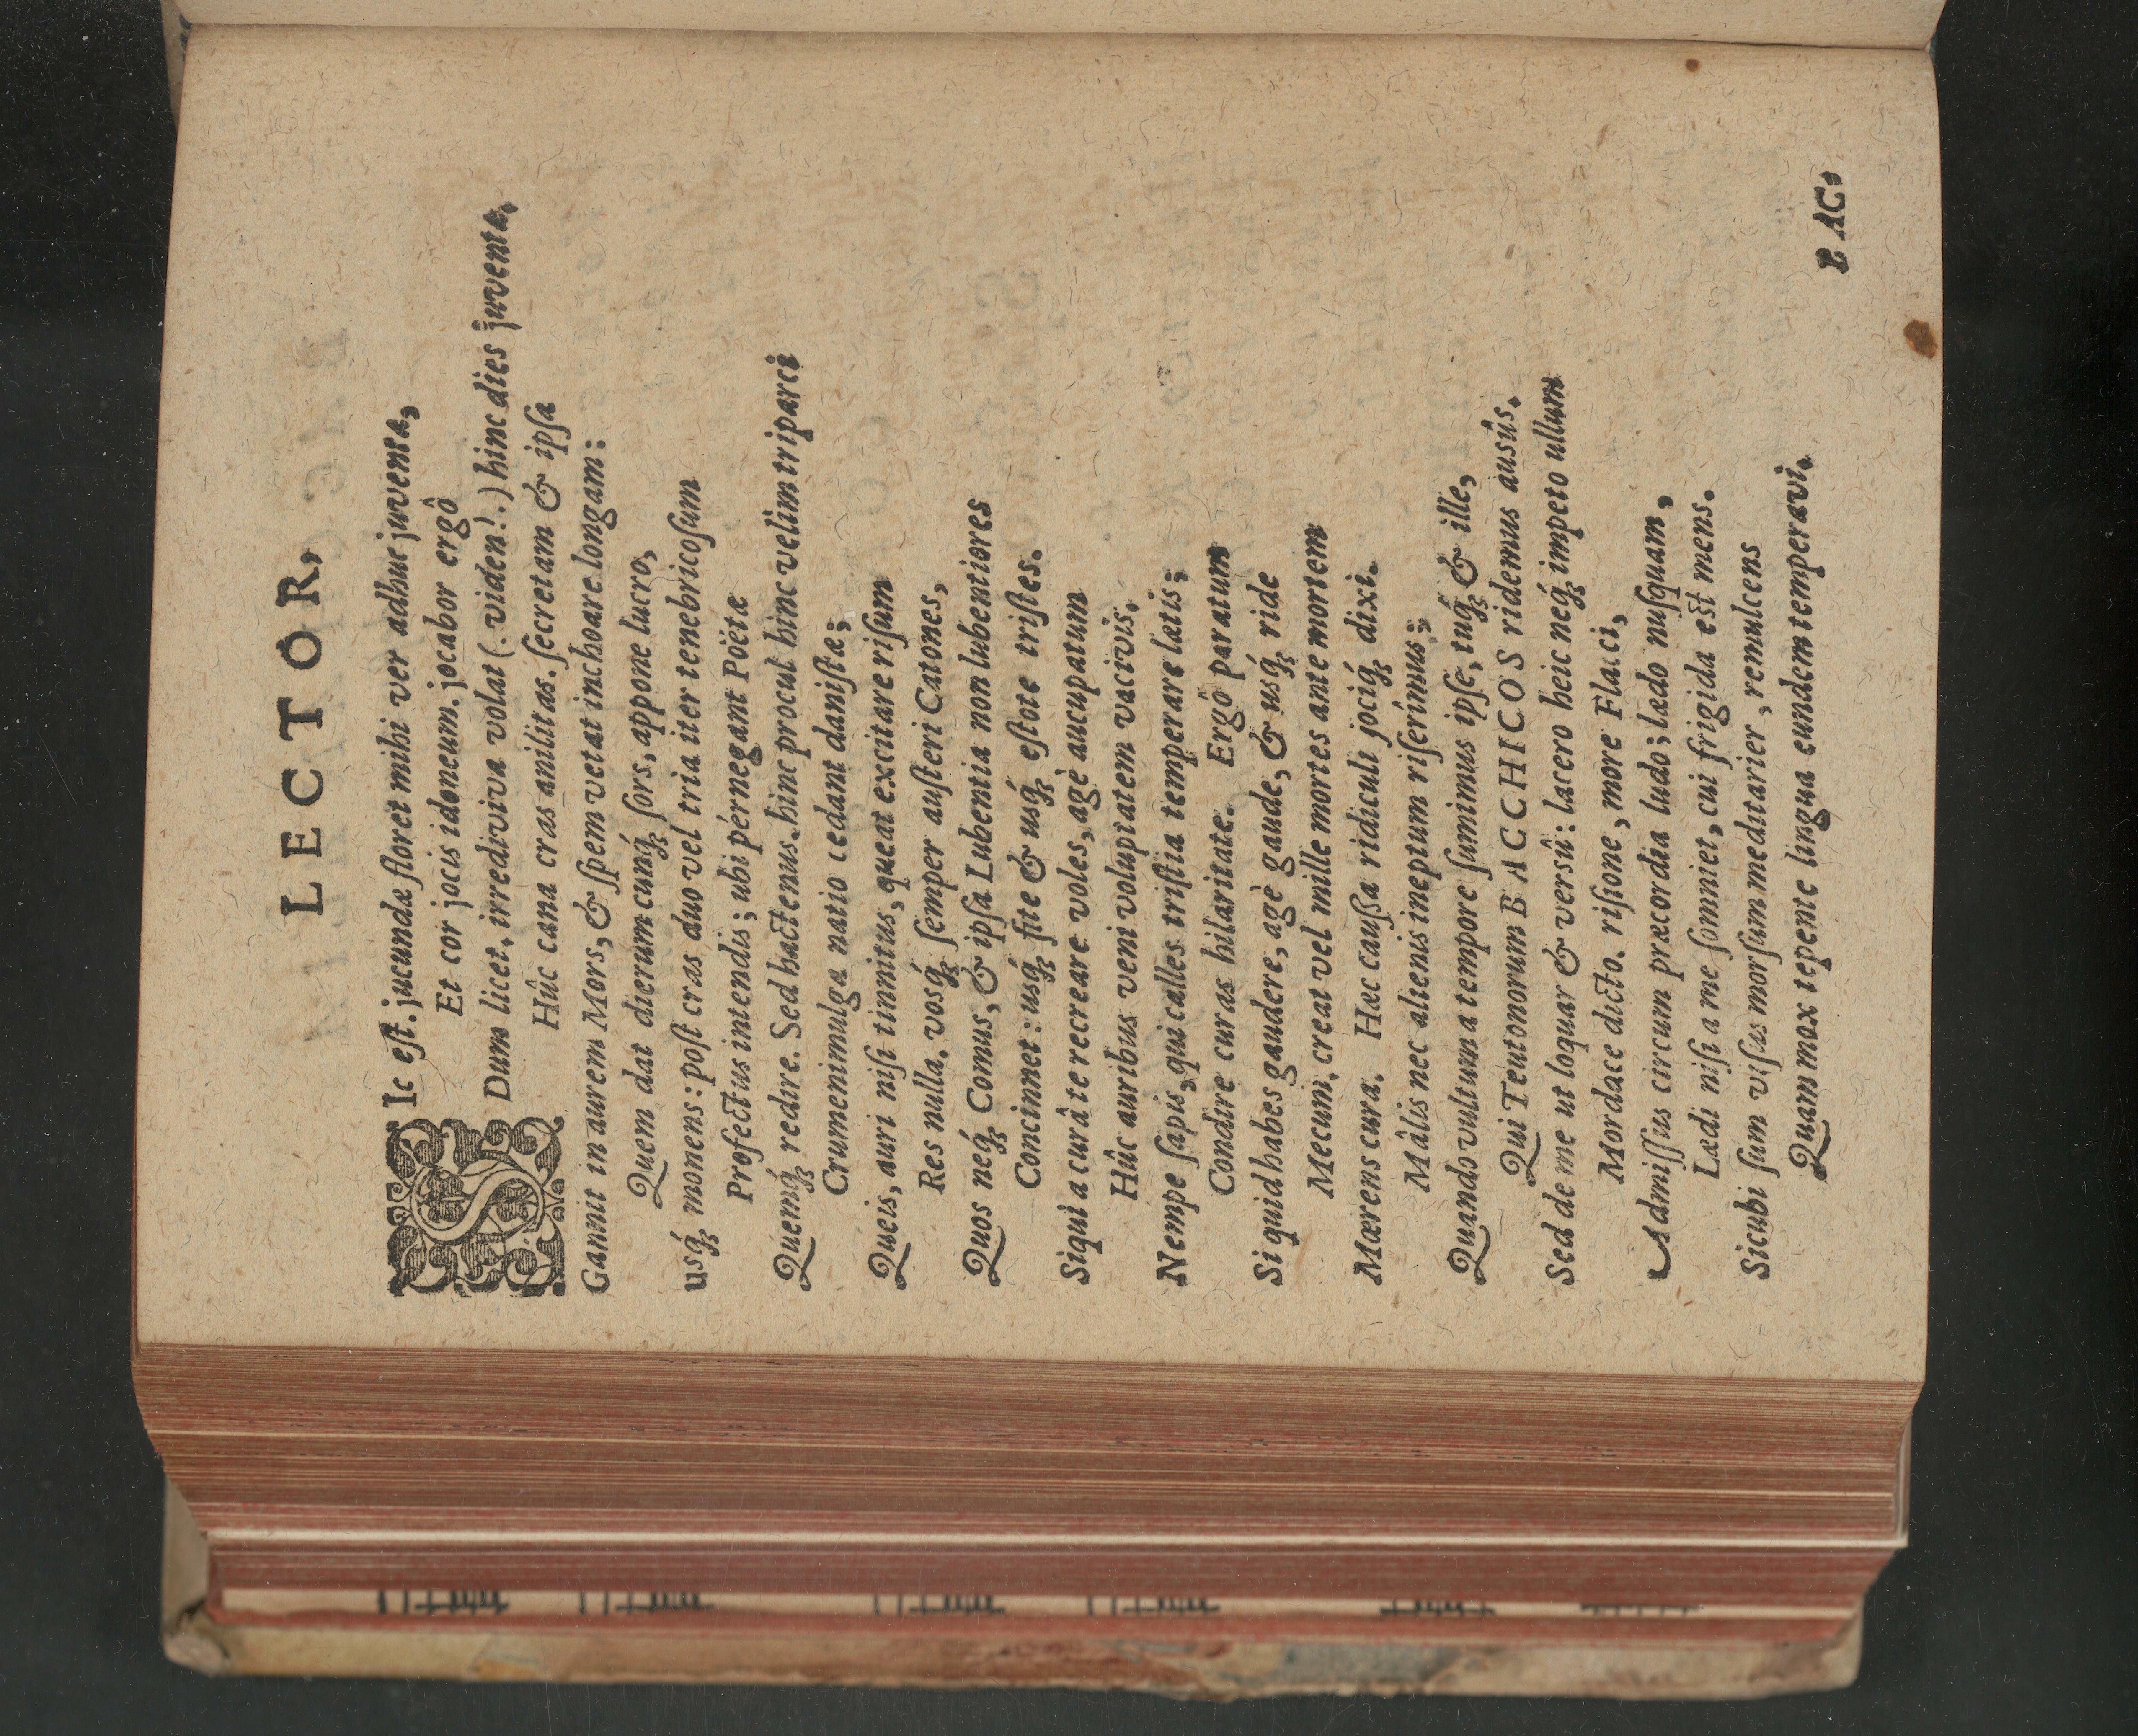 LECTOR,
SIc eſt. jucundæ floret mihi ver adhuc juventæ,
Et cor jocis idoneum. jocabor ergô
Dum licet. irrediviva volat (. viden!.) hinc dies juventæ.
Hûc cana cras anilitas. ſecretam & ipſa
Gannit in aurem Mors, & ſpem vetat inchoare longam:
Quem dat dierum cunq́; ſors, appone lucro,
usq́; monens: poſt cras duo vel tria iter tenebricoſum
Profectus intendis; ubi pérnegant Poëtæ
Quemq́; redire. Sed hactenus. hinc procul hinc velim triparci
Crumenimulga natio cedant daniſtæ;
Queis, auri niſi tinnitus, queat excitare riſum
Res nulla. vosq́; ſemper auſteri Catones,
Quos neq́; Comus, & ipſa Lubentia non lubentiores
Concinnet: usq́; ſite & usq́; eſtote triſtes.
Siqui a curâ te recreare voles, agè aucupatum
Hûc auribus veni voluptatem vacivis.
Nempe ſapis, qui calles triſtia temperare lætis;
Condire curas hilaritate. Ergô paratum
Si quid habes gaudere, agè gaude, & usq́; ride
Mecum. creat vel mille mortes ante mortem
Mærens cura. Hæc cauſſa ridiculi jociq́; dixi.
Mâlis nec alienis ineptum riſerimus;
Quando vultum a tempore ſumimus ipſe, tuq́; & ille,
Qui Teutonorum BACCHICOS ridemus ausûs.
Sed de me ut loquar & versû: lacero heic neq́; impeto ullum
Mordace dicto. riſione, more Flacci,
Admiſſus circum præcordia ludo; lædo nuſquam,
Lædi niſi a me ſomniet, cui frigida eſt mens.
Sicubi ſum viſus morſum meditarier, remulcens
Quam mox tepente lingua eundem temperavi.
P AC.